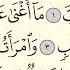 مَآ أَغْنَىٰ
٣ وَٱمْرَأَتُ